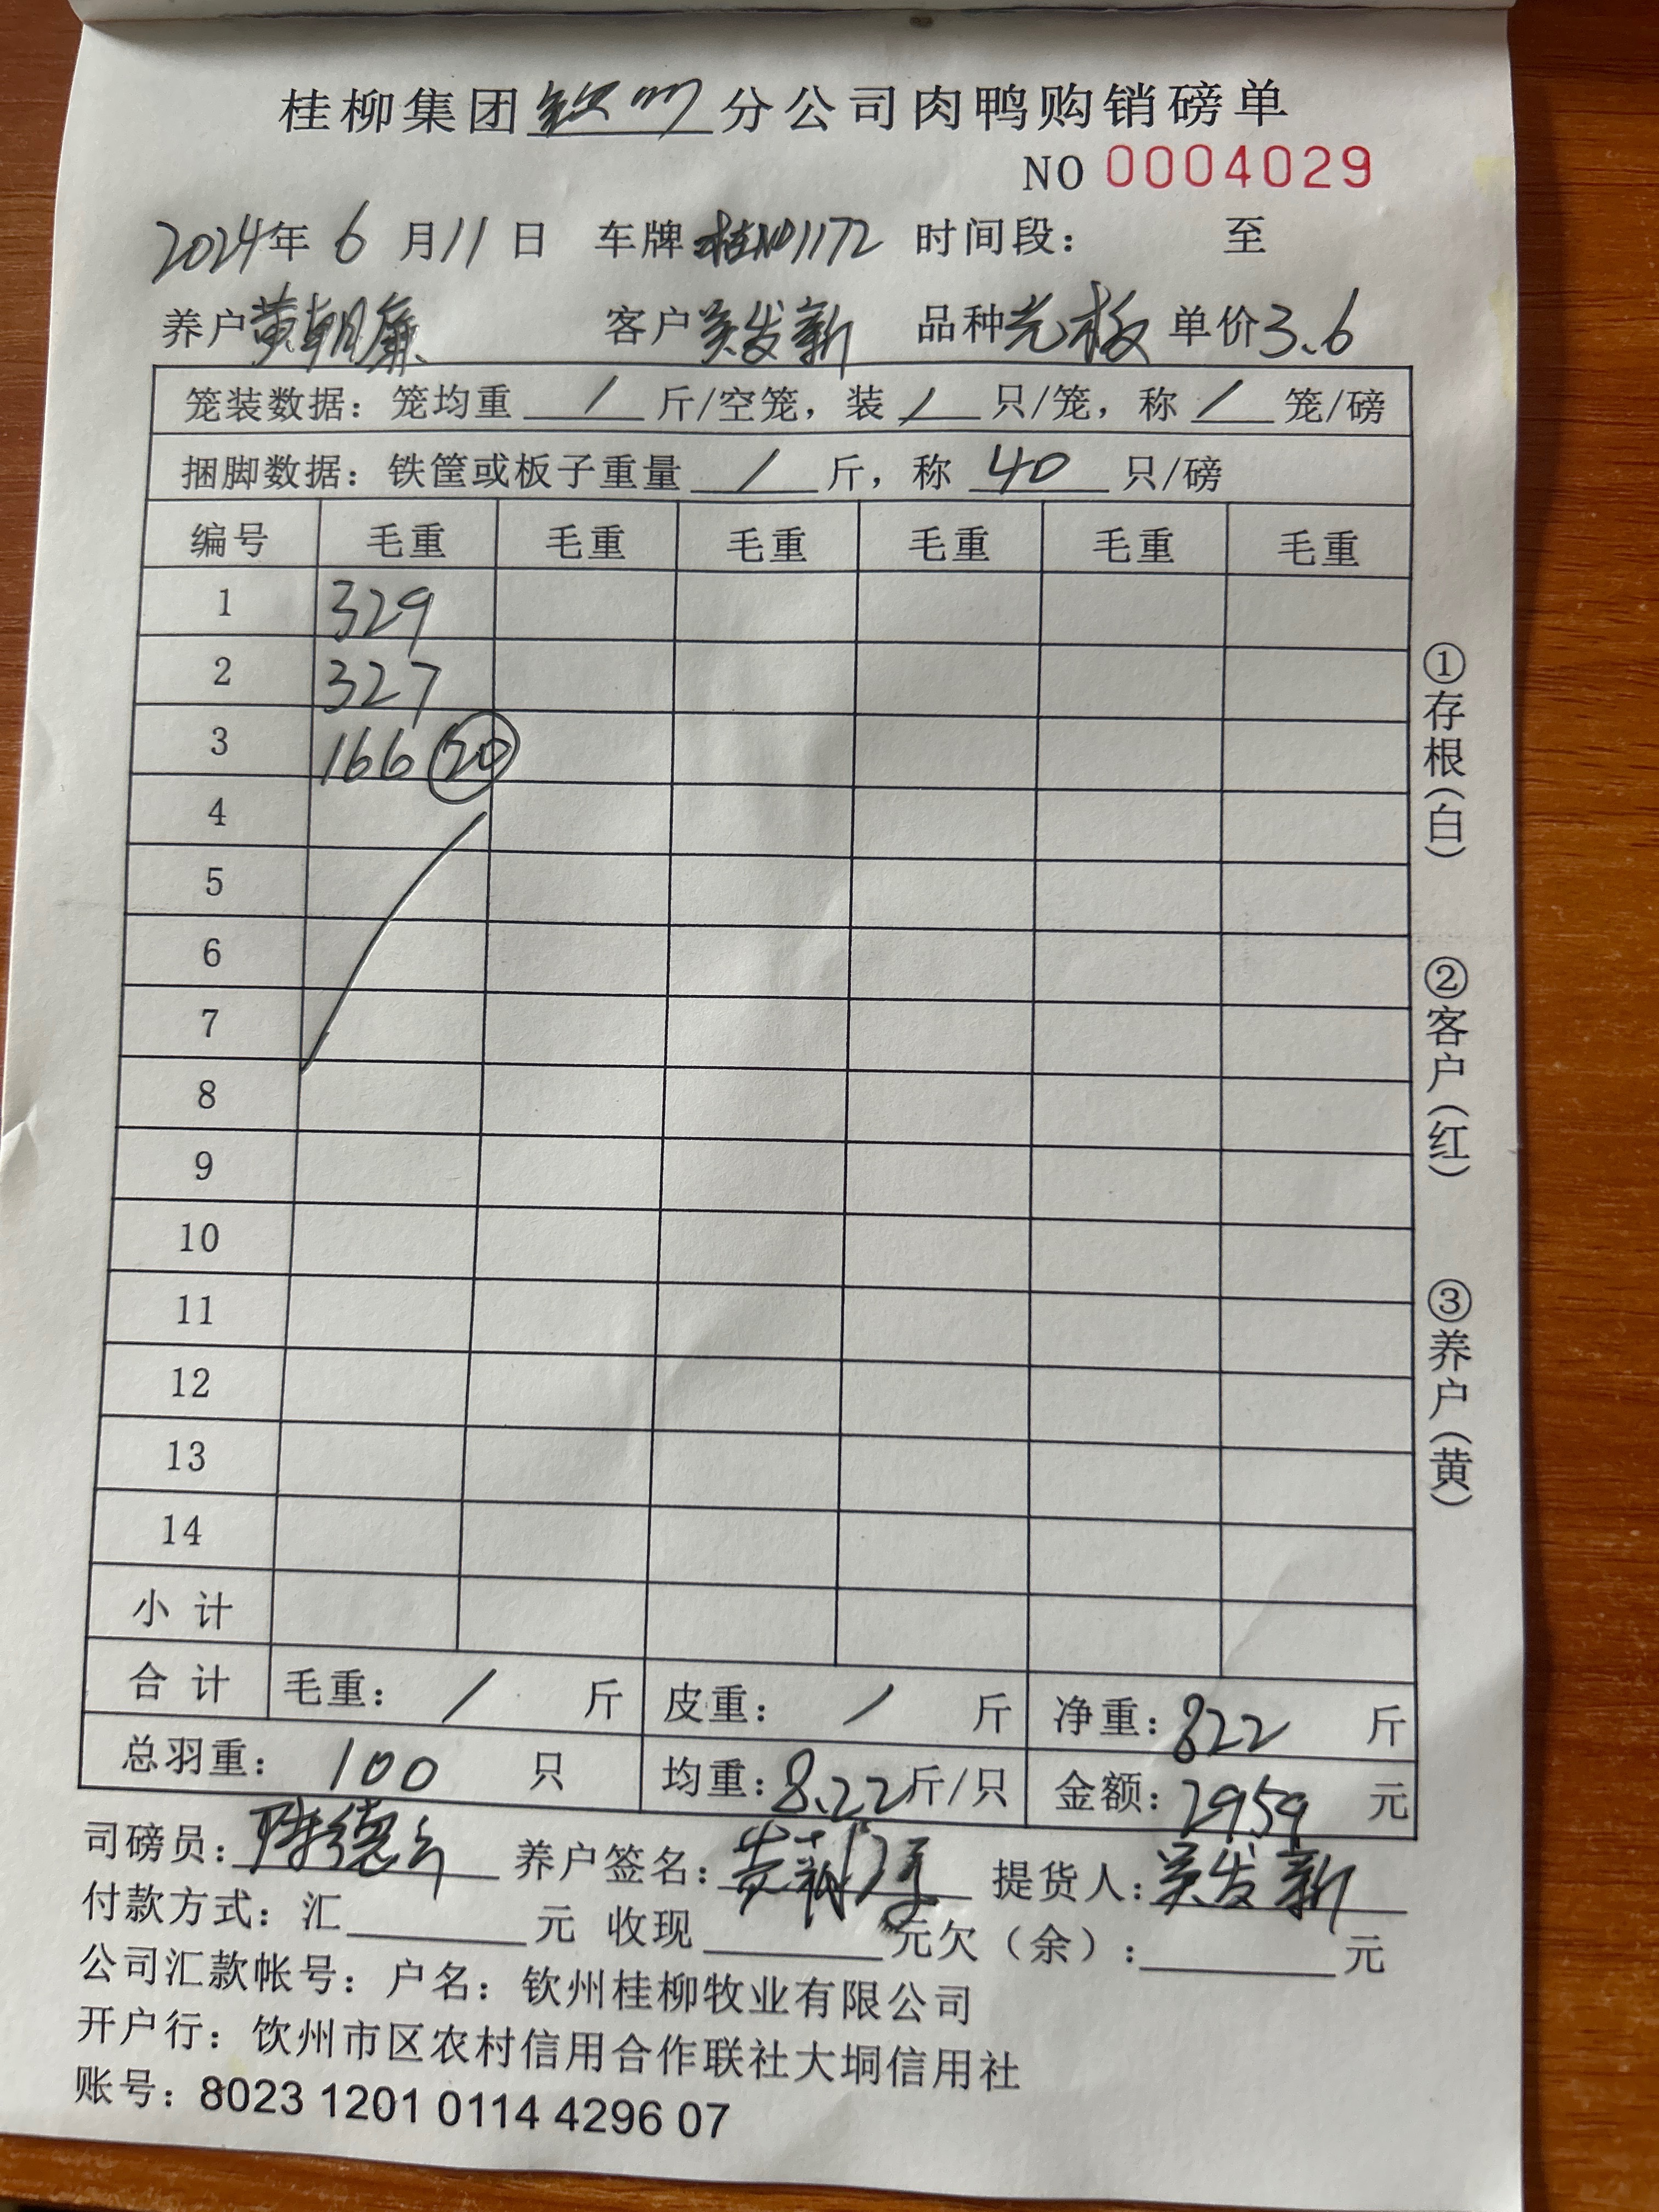 桂柳集团钦州分公司肉鸭购销磅单
NO 0004029
2024年 6 月11 日 车牌:桂ND1172 时间段: 至
养户黄朝廉 客户吴发新 品种光板 单价3.6
笼装数据:笼均重 / 斤/空笼,装 / 只/笼,称 / 笼/磅
捆脚数据:铁筐或板子重量 / 斤,称 40 只/磅
编号 毛重 毛重 毛重 毛重 毛重 毛重
1 329
2 327
3 166 20
4
5
6
7
8
9
10
11
12
13
14
小 计
合 计 毛重: / 斤 皮重: / 斤 净重:822 斤
总羽重: 100 只 均重:8.22斤/只 金额:2959 元
司磅员: 养户签名: 提货人:吴发新
付款方式:汇 元 收现 元欠(余): 元
公司汇款帐号:户名:钦州桂柳牧业有限公司
开户行:饮州市区农村信用合作联社大垌信用社
账号:8023 1201 0114 4296 07
①存根(白)
②客户(红)
③养户(黄)